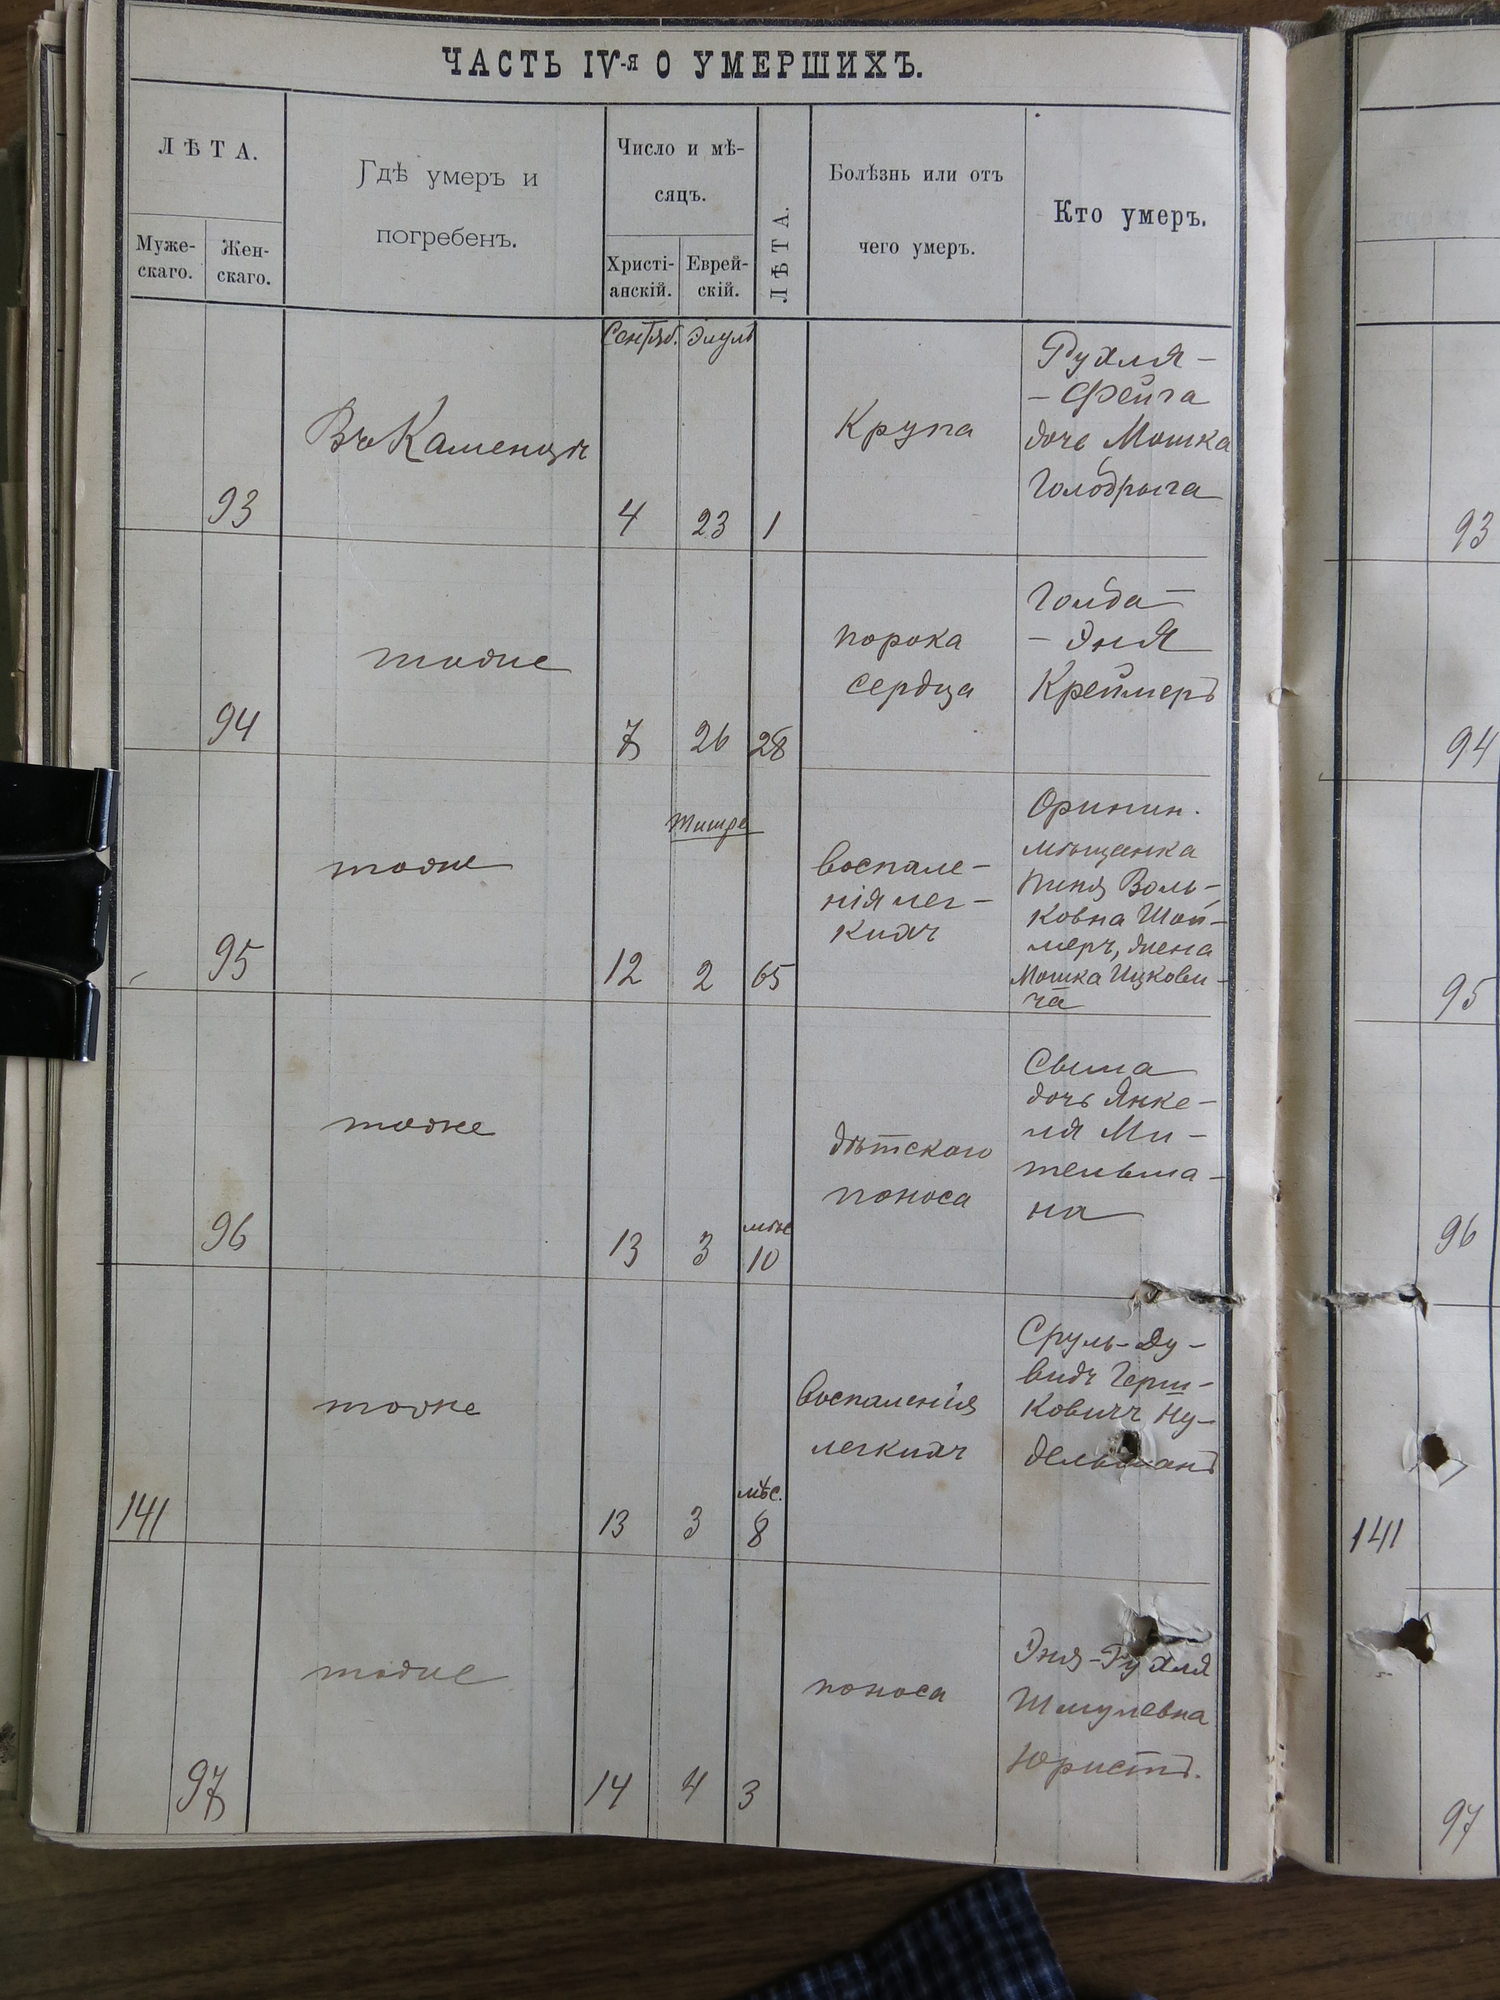 ЧАСТЬ IV-я О УМЕРШИХЪ.
ЛѢТА.
Муже-
скаго.
Жен-
скаго.
Гдѣ умеръ и
погребенъ.
Число и мѣ-
сяцъ.
Христі-
анскій.
Еврей-
скій.
ЛѢТА.
Болѣзнь или отъ
чего умеръ.
Кто умеръ.
93
Въ Каменцѣ
Сентяб. Элулъ
4 23 1
Крупа
Рухля-
-Фейга
дочь Мошка
Голодрыга
93
94
тоже
7 26 28
порока
сердца
Голда-
-Эня
Креймеръ
94
95
тоже
Тишре
12 2 65
воспале-
нія лег-
кихъ
Оринин.
мѣщанка
Пеня Воль-
ковна Шой-
меръ, жена
Мошка Ицкови-
ча
95
96
тоже
13 3
мѣс
10
дѣтскаго
поноса
Сыма
дочь Янке-
ля Ми-
тельма-
на
96
141
тоже
13 3
мѣс.
8
воспаленія
легкихъ
Сруль-Ду-
видъ Герш-
ковичъ Ну-
дельманъ
141
97
тоже
14 4 3
поноса
Эня-Рухля
Шмулевна
Юристъ.
97